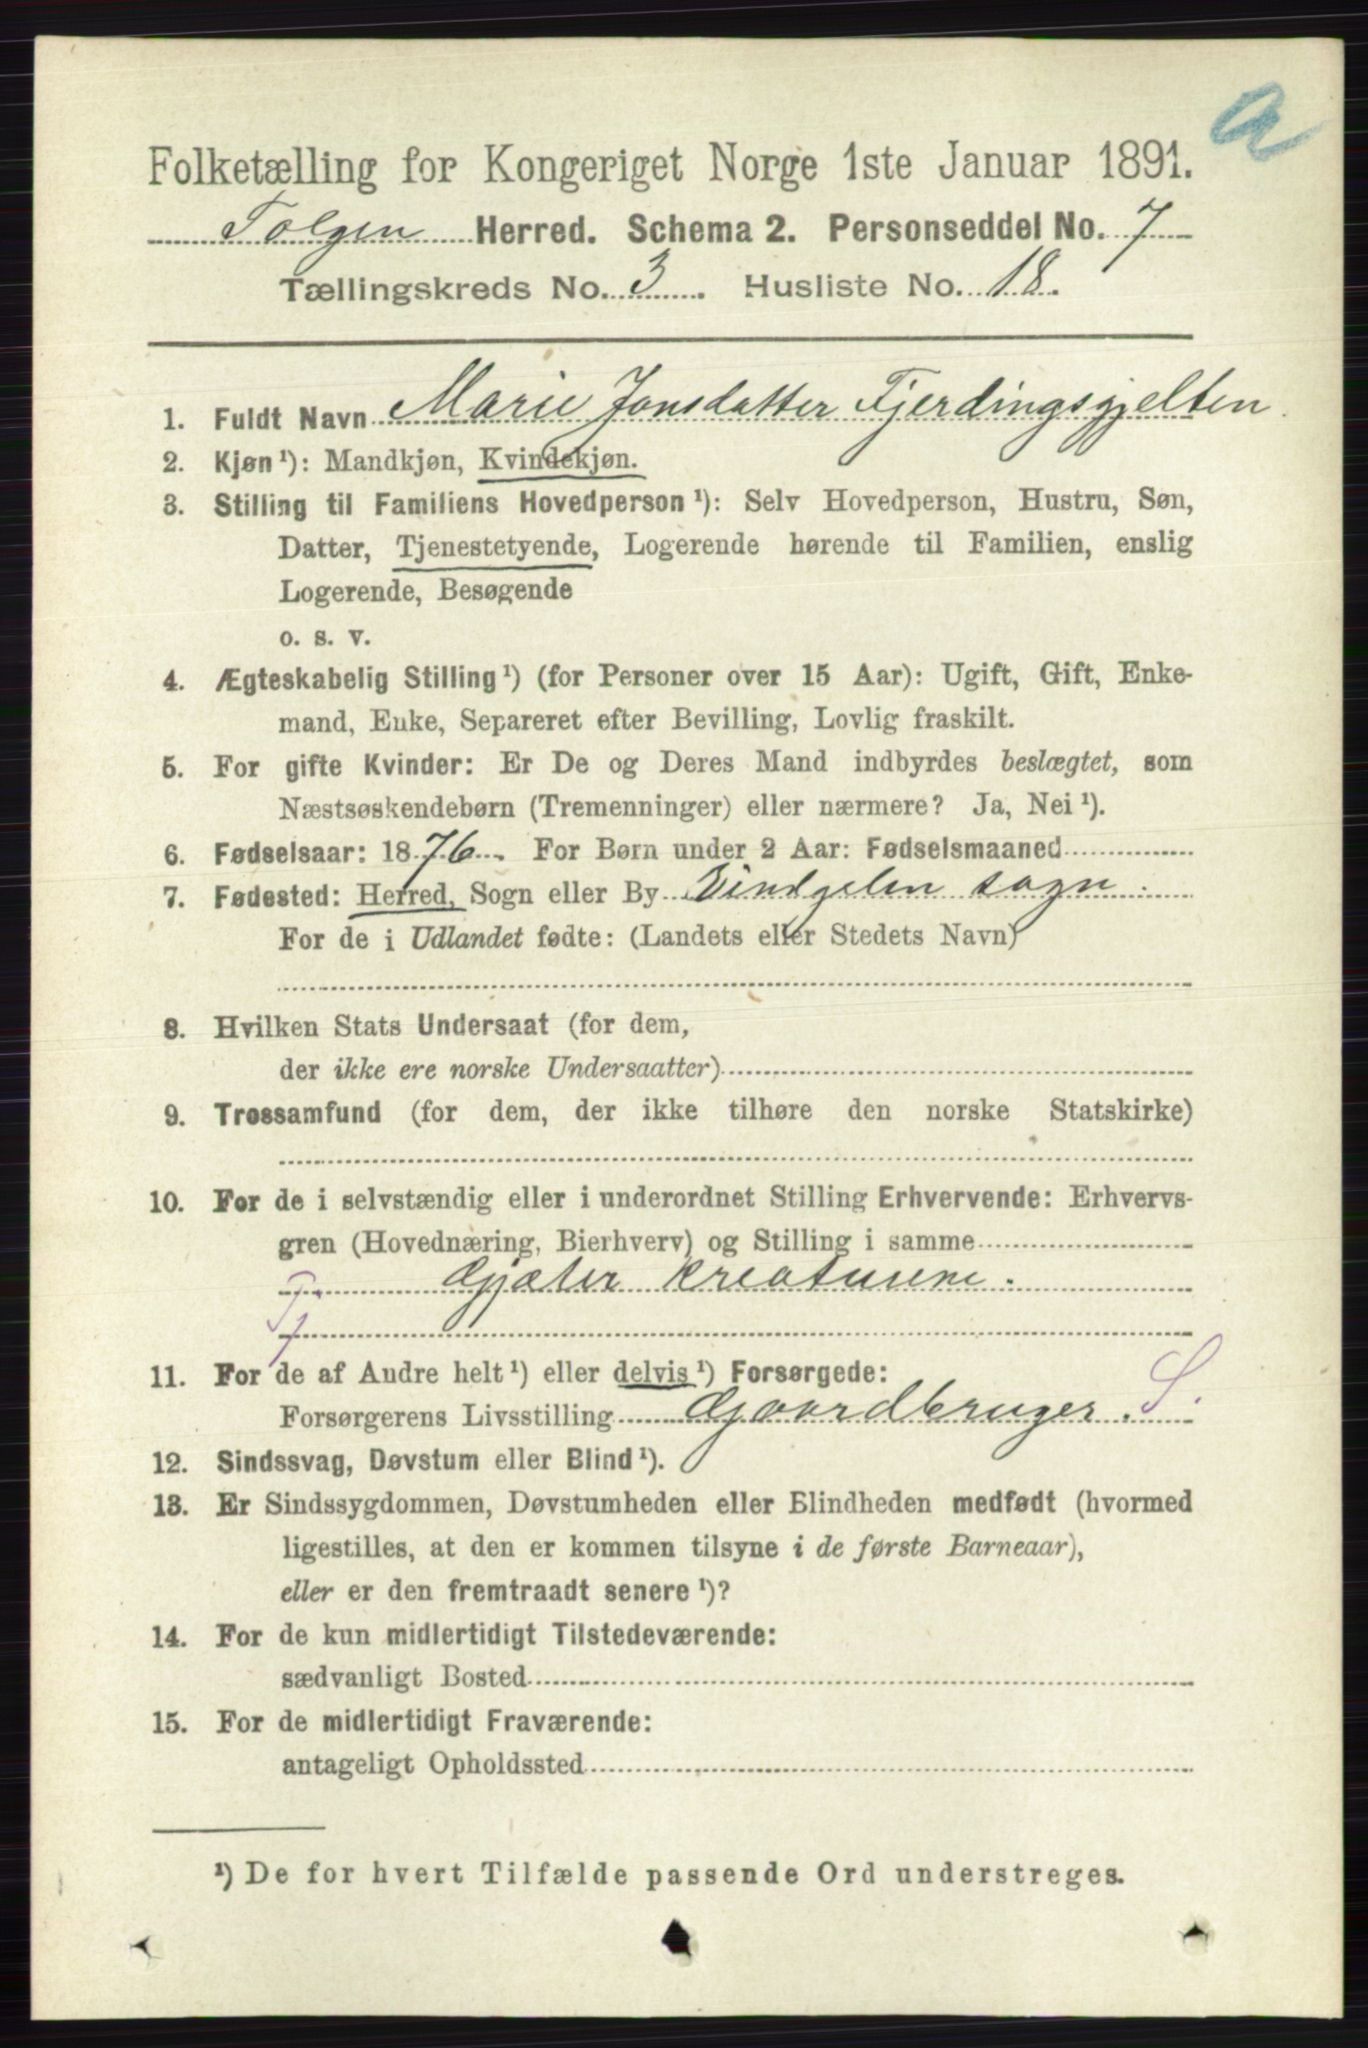 a
Folketælling for Kongeriget Norge 1ste Januar 1891.
Tolgen Herred. Schema 2. Personseddel No. 7
Tællingskreds No. 3. Husliste No. 18.
1. Fuldt Navn Marie Jonsdatter Fjerdingsgjelten.
2. Kjøn¹): Mandkjøn, Kvindekjøn.
3. Stilling til Familiens Hovedperson¹): Selv Hovedperson, Hustru, Søn,
Datter, Tjenestetyende, Logerende hørende til Familien, enslig
Logerende, Besøgende
o. s. v.
4. Ægteskabelig Stilling¹) (for Personer over 15 Aar): Ugift, Gift, Enke-
mand, Enke, Separeret efter Bevilling, Lovlig fraskilt.
5. For gifte Kvinder: Er De og Deres Mand indbyrdes beslægtet, som
Næstsøskendebørn (Tremenninger) eller nærmere? Ja, Nei¹).
6. Fødselsaar: 1876. For Børn under 2 Aar: Fødselsmaaned
7. Fødested: Herred, Sogn eller By Vindgelen sogn.
For de i Udlandet fødte: (Landets eller Stedets Navn)
8. Hvilken Stats Undersaat (for dem,
der ikke ere norske Undersaatter)
9. Trossamfund (for dem, der ikke tilhøre den norske Statskirke)
10. For de i selvstændig eller i underordnet Stilling Erhvervende: Erhvervs-
gren (Hovednæring, Bierhverv) og Stilling i samme
Tj. Gjæter kreaturene.
11. For de af Andre helt¹) eller delvis¹) Forsørgede:
Forsørgerens Livsstilling Gaardbruger. S.
12. Sindssvag, Døvstum eller Blind¹).
13. Er Sindssygdommen, Døvstumheden eller Blindheden medfødt (hvormed
ligestilles, at den er kommen tilsyne i de første Barneaar),
eller er den fremtraadt senere¹)?
14. For de kun midlertidigt Tilstedeværende:
sædvanligt Bosted
15. For de midlertidigt Fraværende:
antageligt Opholdssted
¹) De for hvert Tilfælde passende Ord understreges.